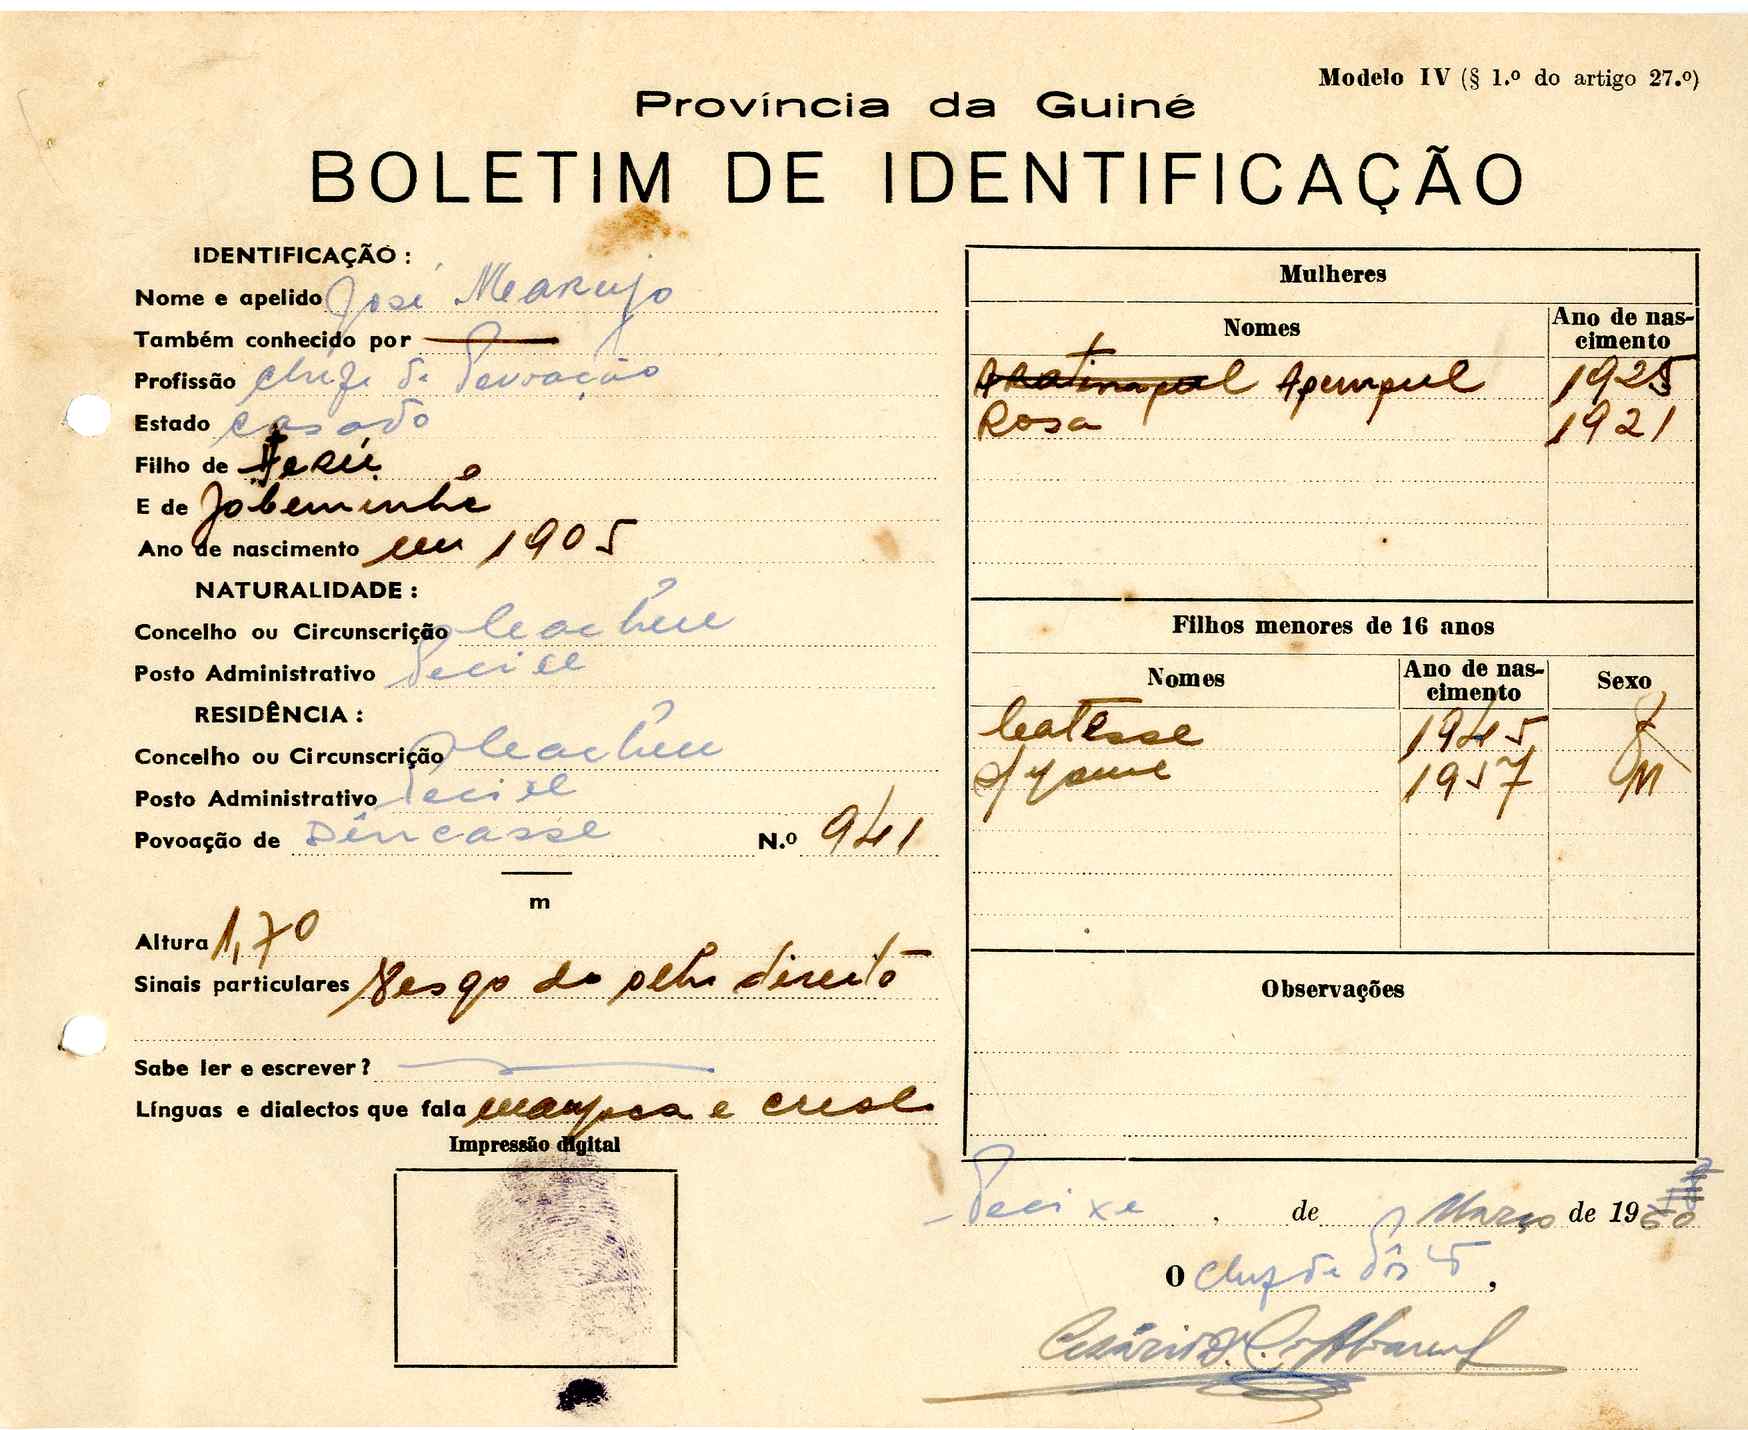 Modelo IV (§ 1.º do artigo 27.º)
Província da Guiné
BOLETIM DE IDENTIFICAÇÃO
IDENTIFICAÇÃO :
Nome e apelido José
Também conhecido por
Profissão Chefe de Povoação
Estado casado
Filho de
E de
Ano de nascimento em 1905
NATURALIDADE :
Concelho ou Circunscrição Cacheu
Posto Administrativo
RESIDÊNCIA :
Concelho ou Circunscrição Cacheu
Posto Administrativo
Povoação de N.º 941
m
Altura 1,70
Sinais particulares Vesgo do olho direito
Sabe ler e escrever?
Línguas e dialectos que fala e
Impressão digital
Mulheres
Nomes Ano de nascimento
1925
Rosa 1921
Filhos menores de 16 anos
Nomes Ano de nascimento Sexo
1945
1957 M
Observações
Pecixe, de Março de 1960
O Chefe de Pôsto,